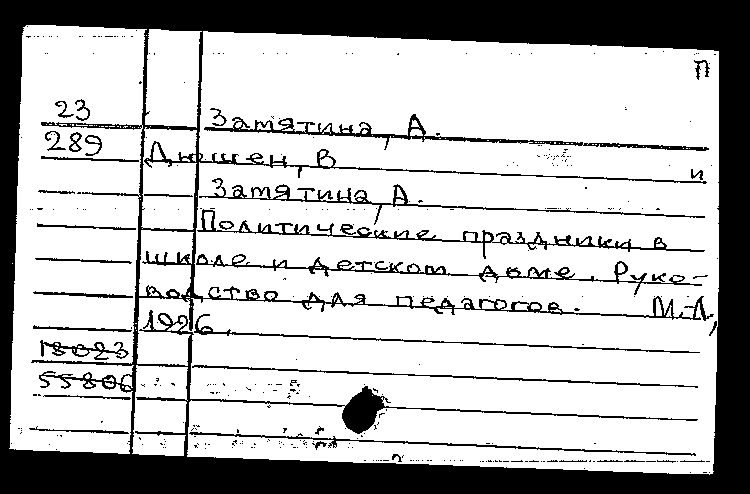 П
23 Заmятина, А.
289 Дюшен, В и
Заmятина, А.
Политические праздники в
школе и детском доме. Руко-
водство для педагогов. М.-Л,
1926.
18023
55806